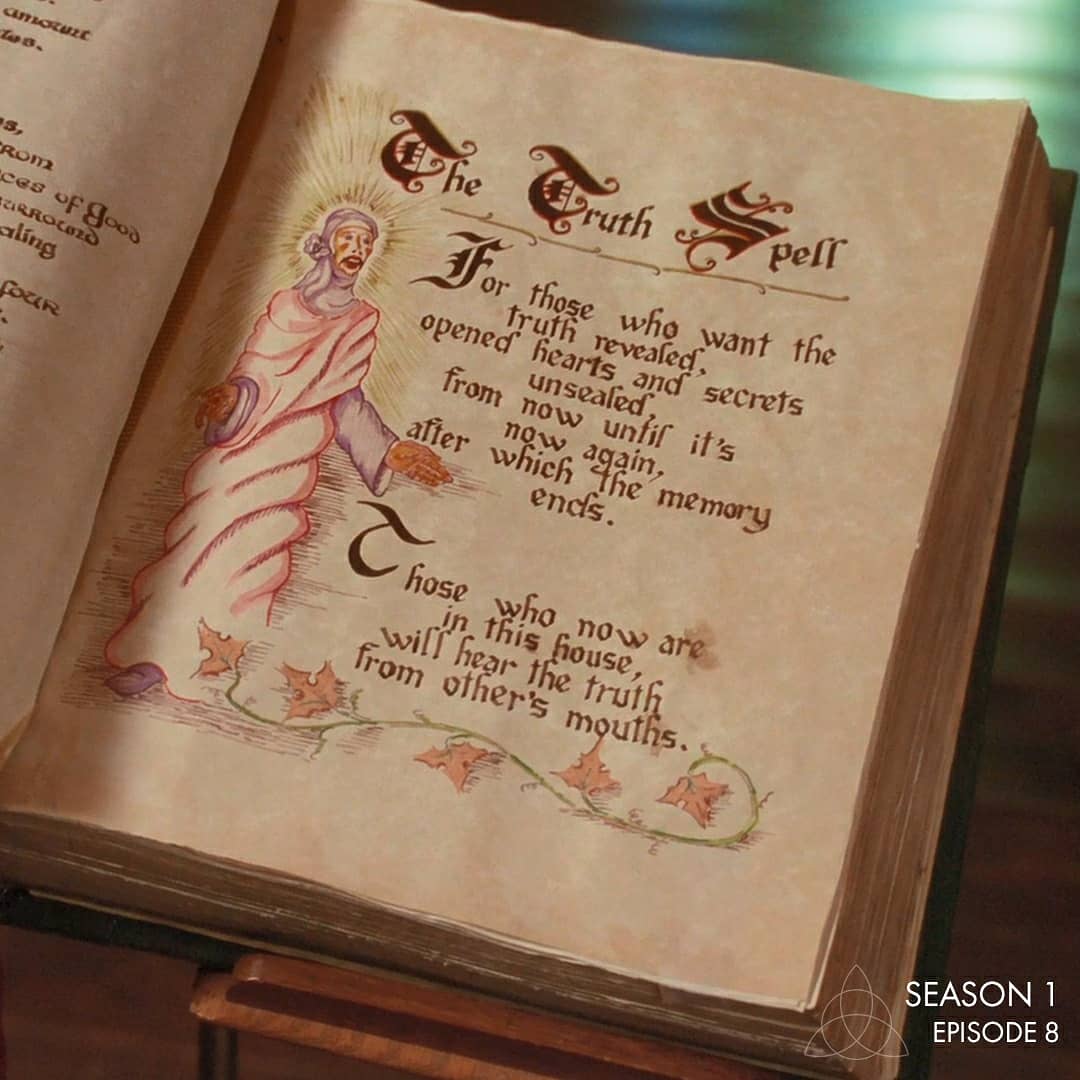 amount
The Truth Spell
For those who want the
truth revealed,
opened hearts and secrets
unsealed,
from now until it's
now again,
after which the memory
ends.
Those who now are
in this house,
will hear the truth
from other's mouths.
of Good
SEASON 1
EPISODE 8